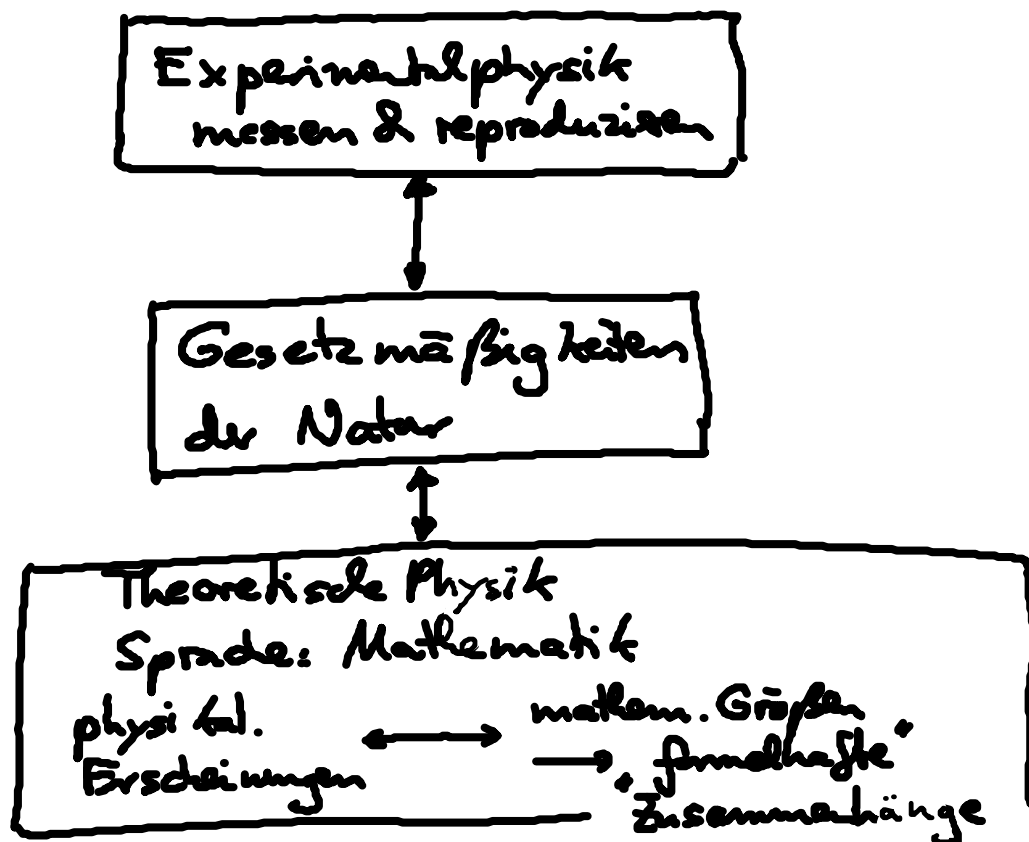 Experimentalphysik
messen & reproduzieren
Gesetzmäßigkeiten
der Natur
Theoretische Physik
Sprache: Mathematik
physikal.
Erscheinungen
mathem. Größen
"formelhafte"
Zusammenhänge